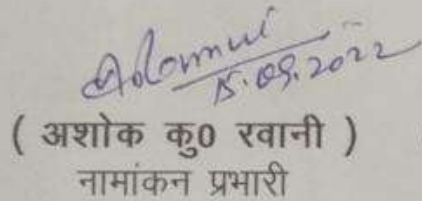 15.09.2022
( अशोक कु0 रवानी )
नामांकन प्रभारी